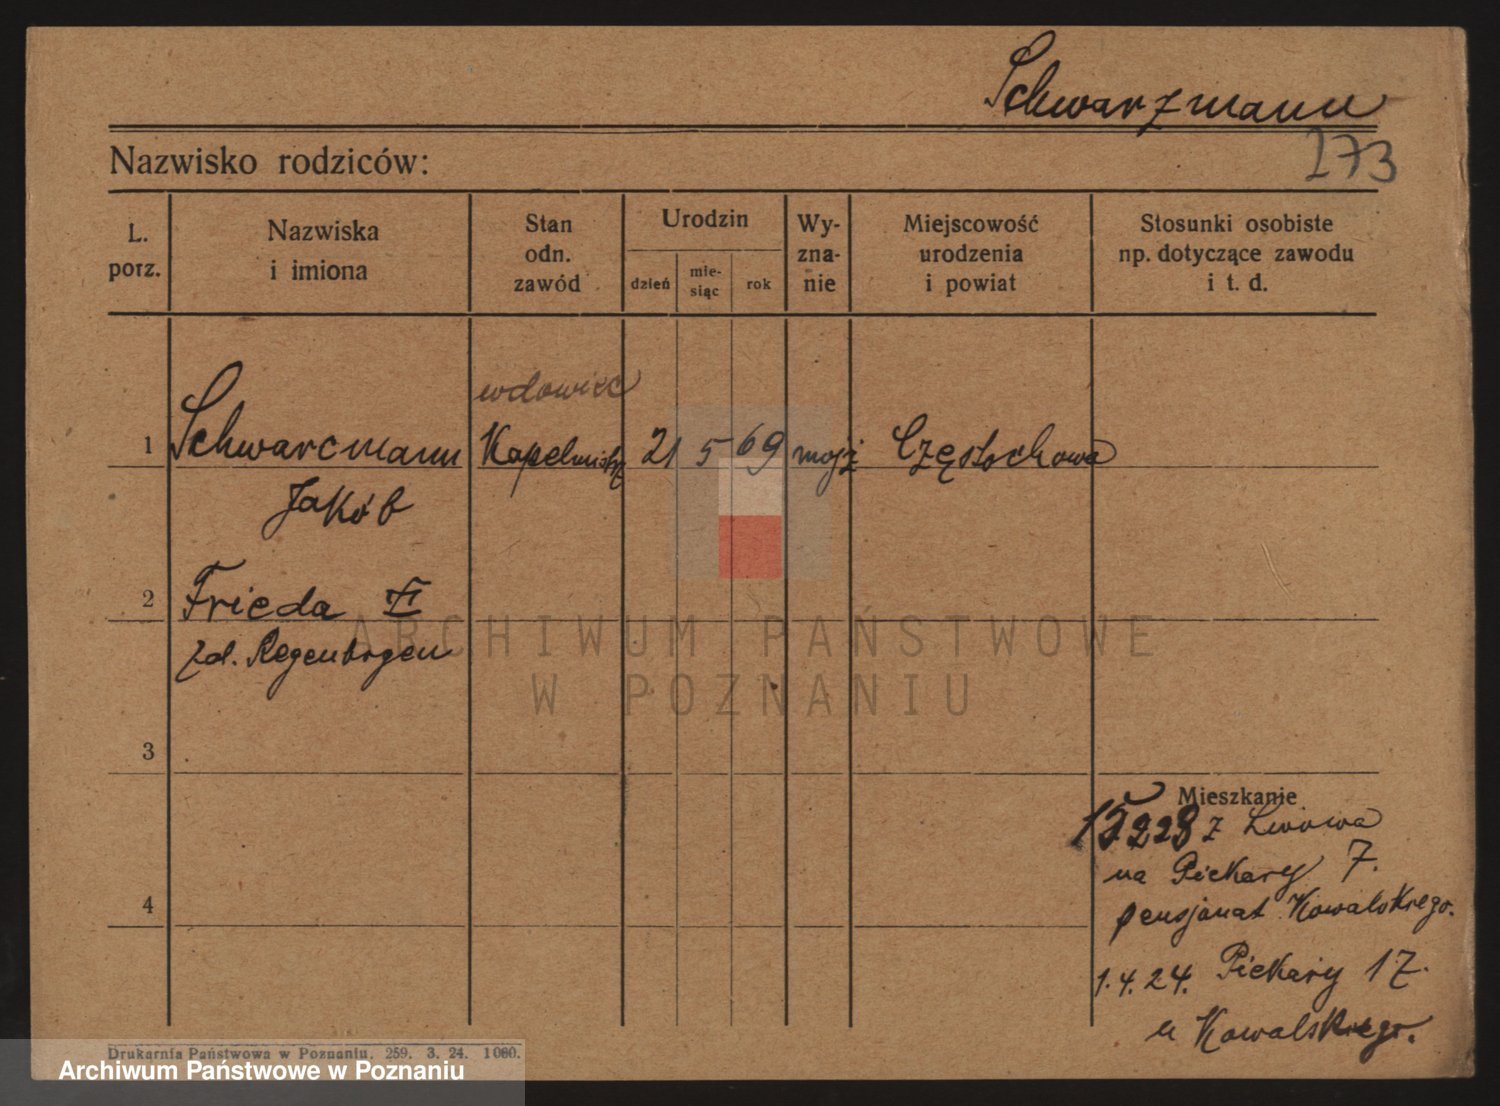 Schwarzmann
273
Nazwisko rodziców:
L. porz.
Nazwiska i imiona
Stan odn. zawód
Urodzin
dzień
mie-siąc
rok
Wy-zna-nie
Miejscowość urodzenia i powiat
Stosunki osobiste np. dotyczące zawodu i t. d.
wdowiec
1 Schwarcmann Kapelmistrz 21 5 69 mojż Częstochowa
Jakób
2 Frieda
zd. Regenbogen
ARCHIWUM PAŃSTWOWE
W POZNANIU
3
Mieszkanie
z Lwowa
na Piekary 7.
4
pensjonat Kowalskiego.
1.4.24. Piekary 17.
u Kowalskiego.
Drukarnia Państwowa w Poznaniu. 259. 3. 24. 1060.
Archiwum Państwowe w Poznaniu